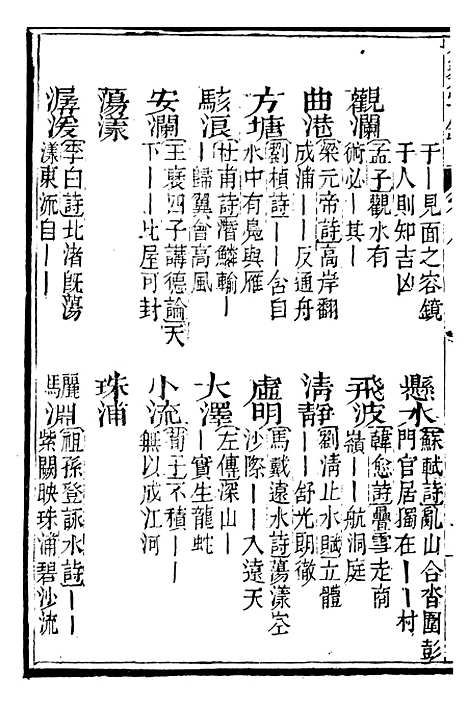 于丨見面之容鏡
于人則知吉凶
懸水
蘇軾詩亂山合沓圍彭
門官居獨在丨丨村
觀瀾
孟子觀水有
術必丨其丨
飛波
韓愈詩疊雪走商
嶺丨丨航洞庭
曲港
梁元帝詩高岸翻
成浦丨丨反通舟
清靜
劉清止水賦立體
丨丨舒光朗徹
方塘
劉楨詩丨丨含自
水中有鳧與雁
虛明
馬戴遠水詩蕩漾空
沙際丨丨入遠天
駭浪
杜甫詩潛鱗輸丨
丨歸翼會高風
大澤
左傳深山丨
丨實生龍蛇
安瀾
王襃四子講德論天
下丨丨比屋可封
小流
荀子不積丨丨
無以成江河
蕩漾
珠浦
潺湲
李白詩北渚既蕩
漾東流自丨丨
驪淵
祖孫登詠水詩丨丨
紫關映珠浦碧沙流